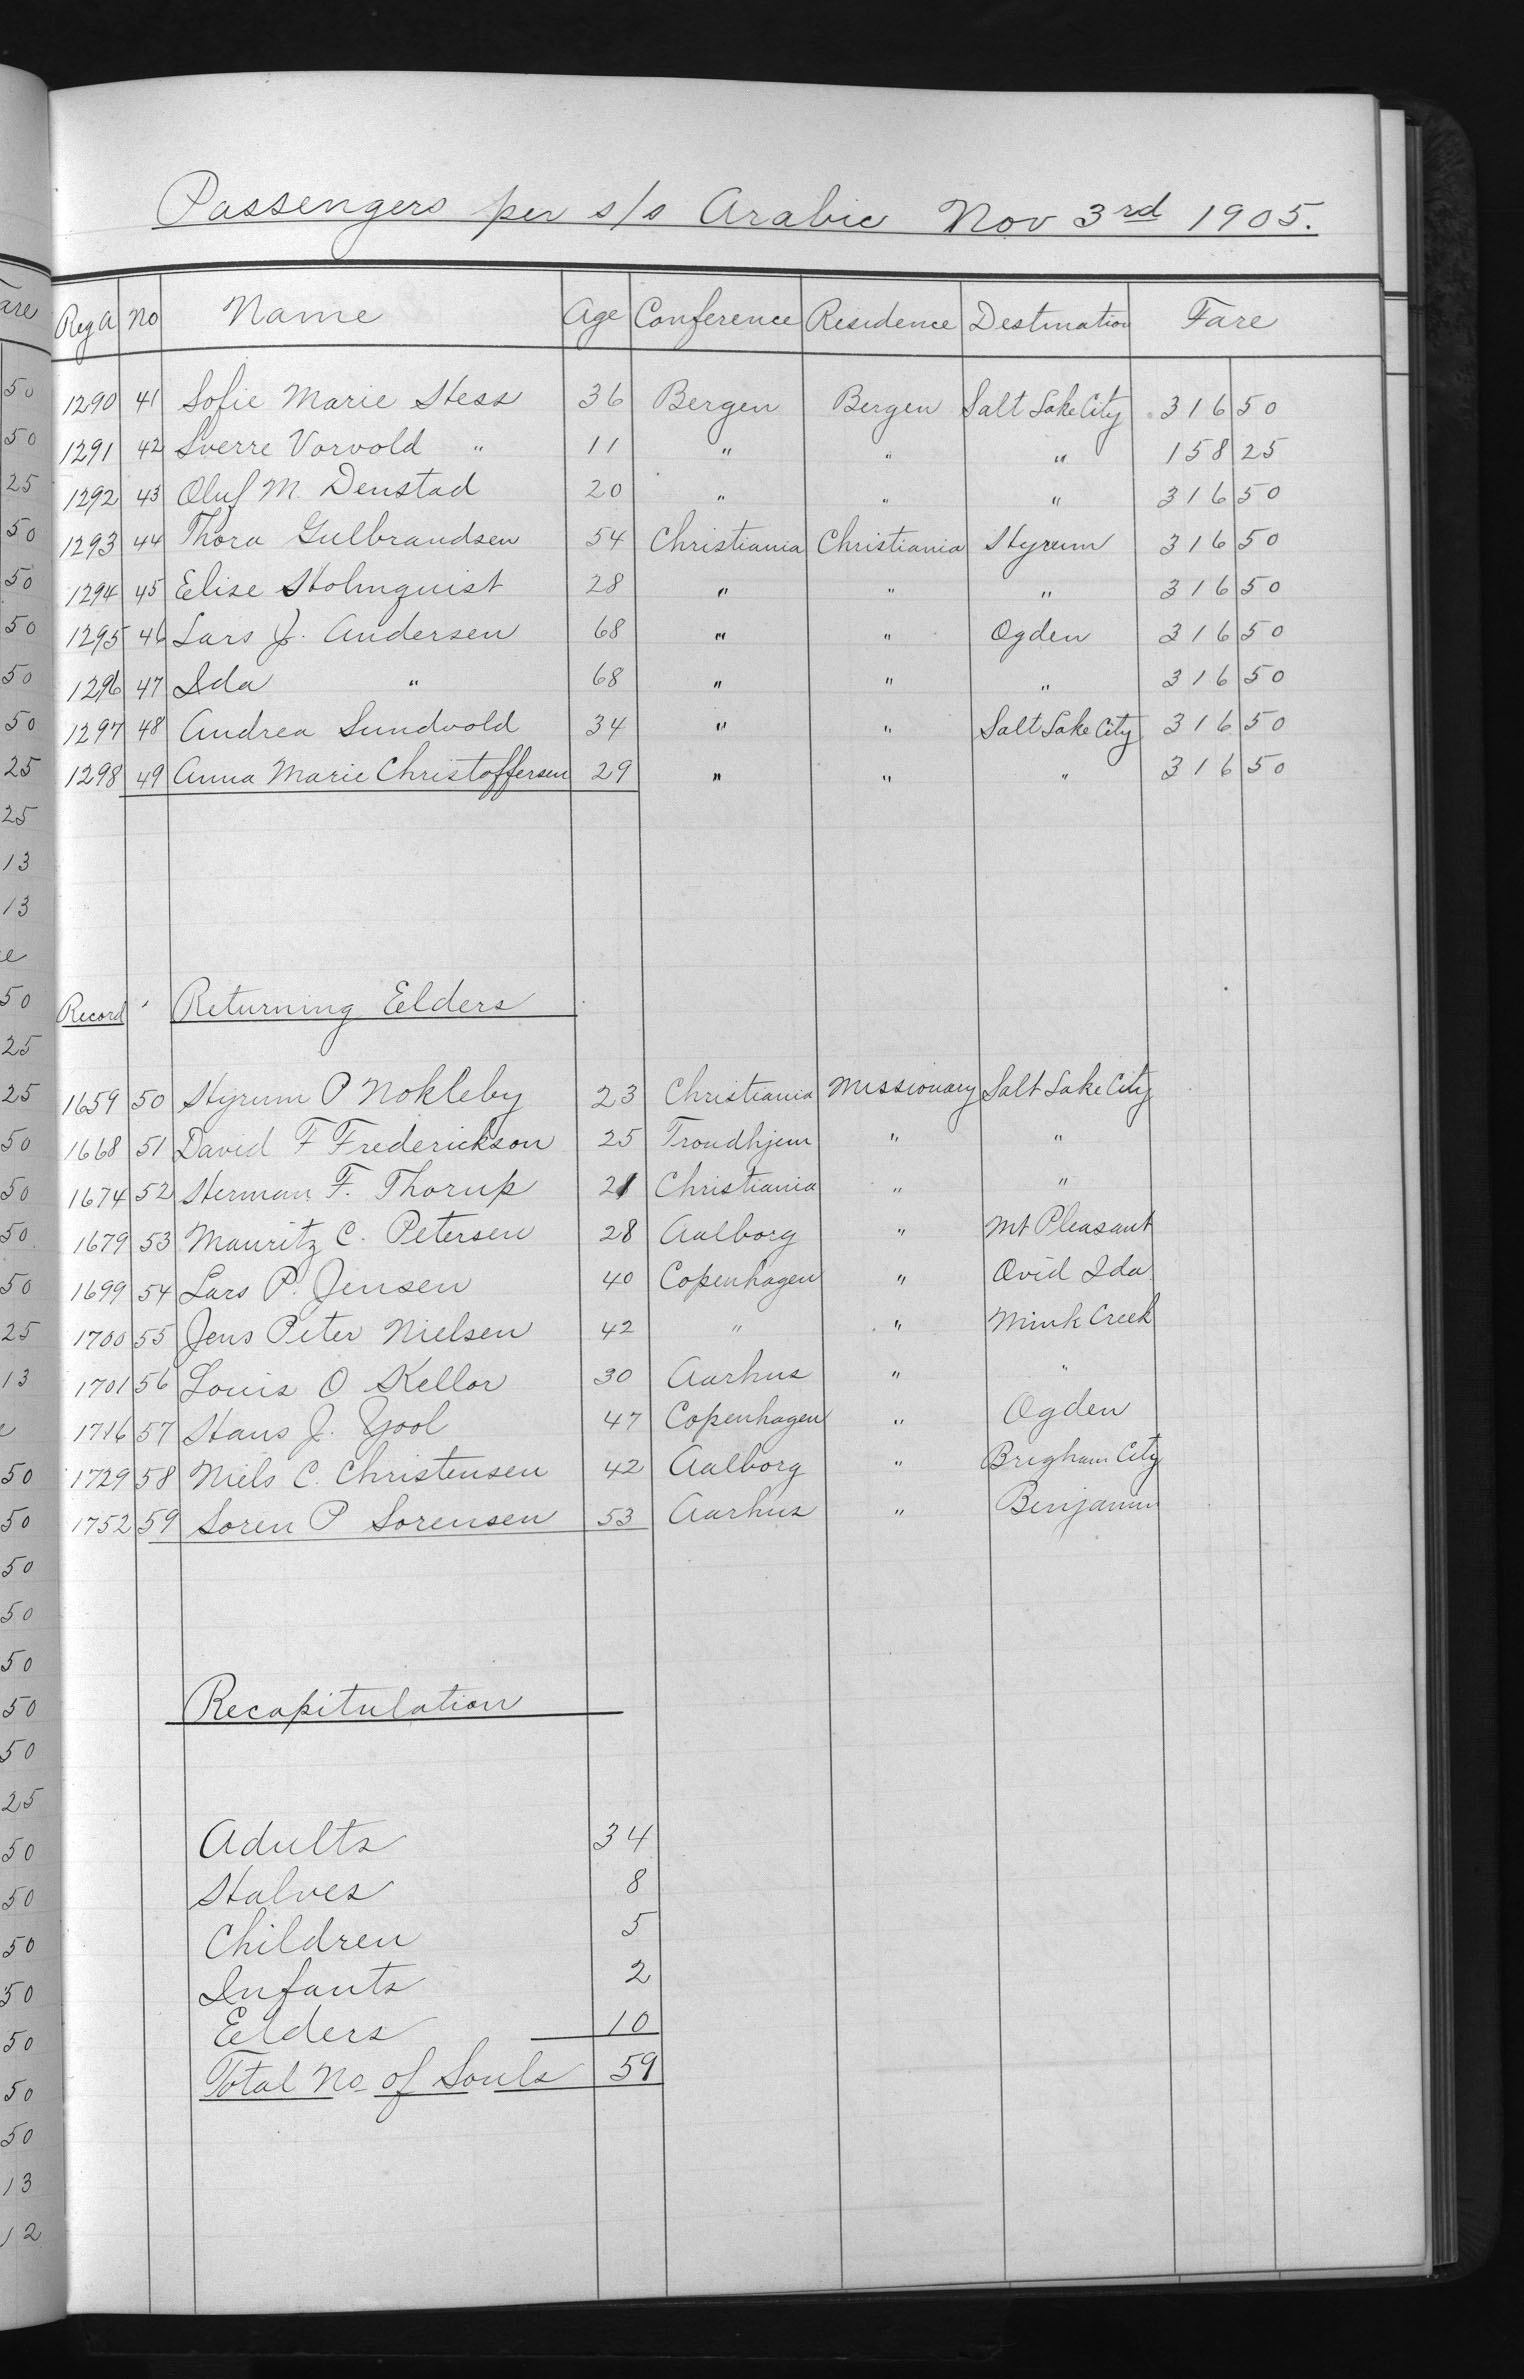 Passengers per s/s Arabic Nov 3rd 1905.
Reg A No Name Age Conference Residence Destination Fare
1290 41 Sofie Marie Hess 36 Bergen Bergen Salt Lake City 316 50
1291 42 Sverre Vorvold " 11 " " " 158 25
1292 43 Oluf M. Denstad 20 " " " 316 50
1293 44 Thora Gulbrandsen 54 Christiania Christiania Hyrum 316 50
1294 45 Elise Holmquist 28 " " " 316 50
1295 46 Lars J. Andersen 68 " " Ogden 316 50
1296 47 Ida " 68 " " " 316 50
1297 48 Andrea Sundvold 34 " " Salt Lake City 316 50
1298 49 Anna Marie Christoffersen 29 " " " 316 50
Record Returning Elders
1659 50 Hyrum P Nokleby 23 Christiania Missionary Salt Lake City
1668 51 David F Frederickson 25 Trondhjem " "
1674 52 Herman F. Thorup 21 Christiania " "
1679 53 Mauritz C. Petersen 28 Aalborg " Mt Pleasant
1699 54 Lars P. Jensen 40 Copenhagen " Ovid Ida
1700 55 Jens Peter Nielsen 42 " " Mink Creek
1701 56 Louis O Kellor 30 Aarhus " "
1716 57 Hans J. Yool 47 Copenhagen " Ogden
1729 58 Niels C. Christensen 42 Aalborg " Brigham City
1752 59 Soren P Sorensen 53 Aarhus " Benjamin
Recapitulation
Adults 34
Halves 8
Children 5
Infants 2
Elders 10
Total No of Souls 59